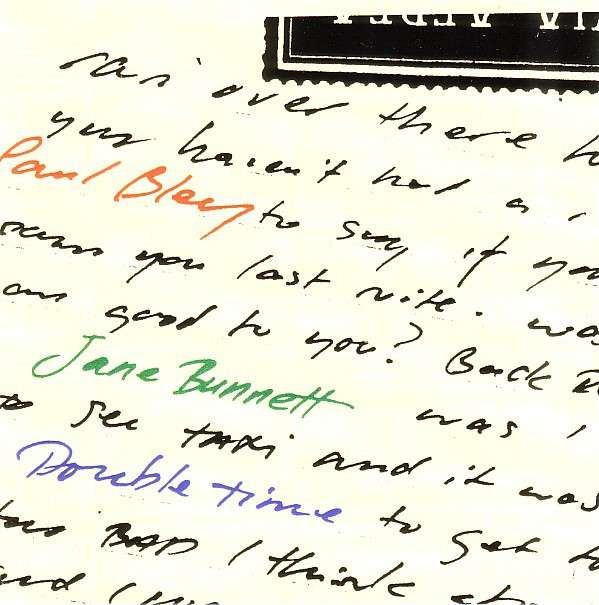 VIA AEREA
over there to
you haven't had a
Paul Bley to say if you
you last nite. was
good to you? Back
Jane Bunnett was
to see taxi and it was
Double time to get to
BAD I think
and I